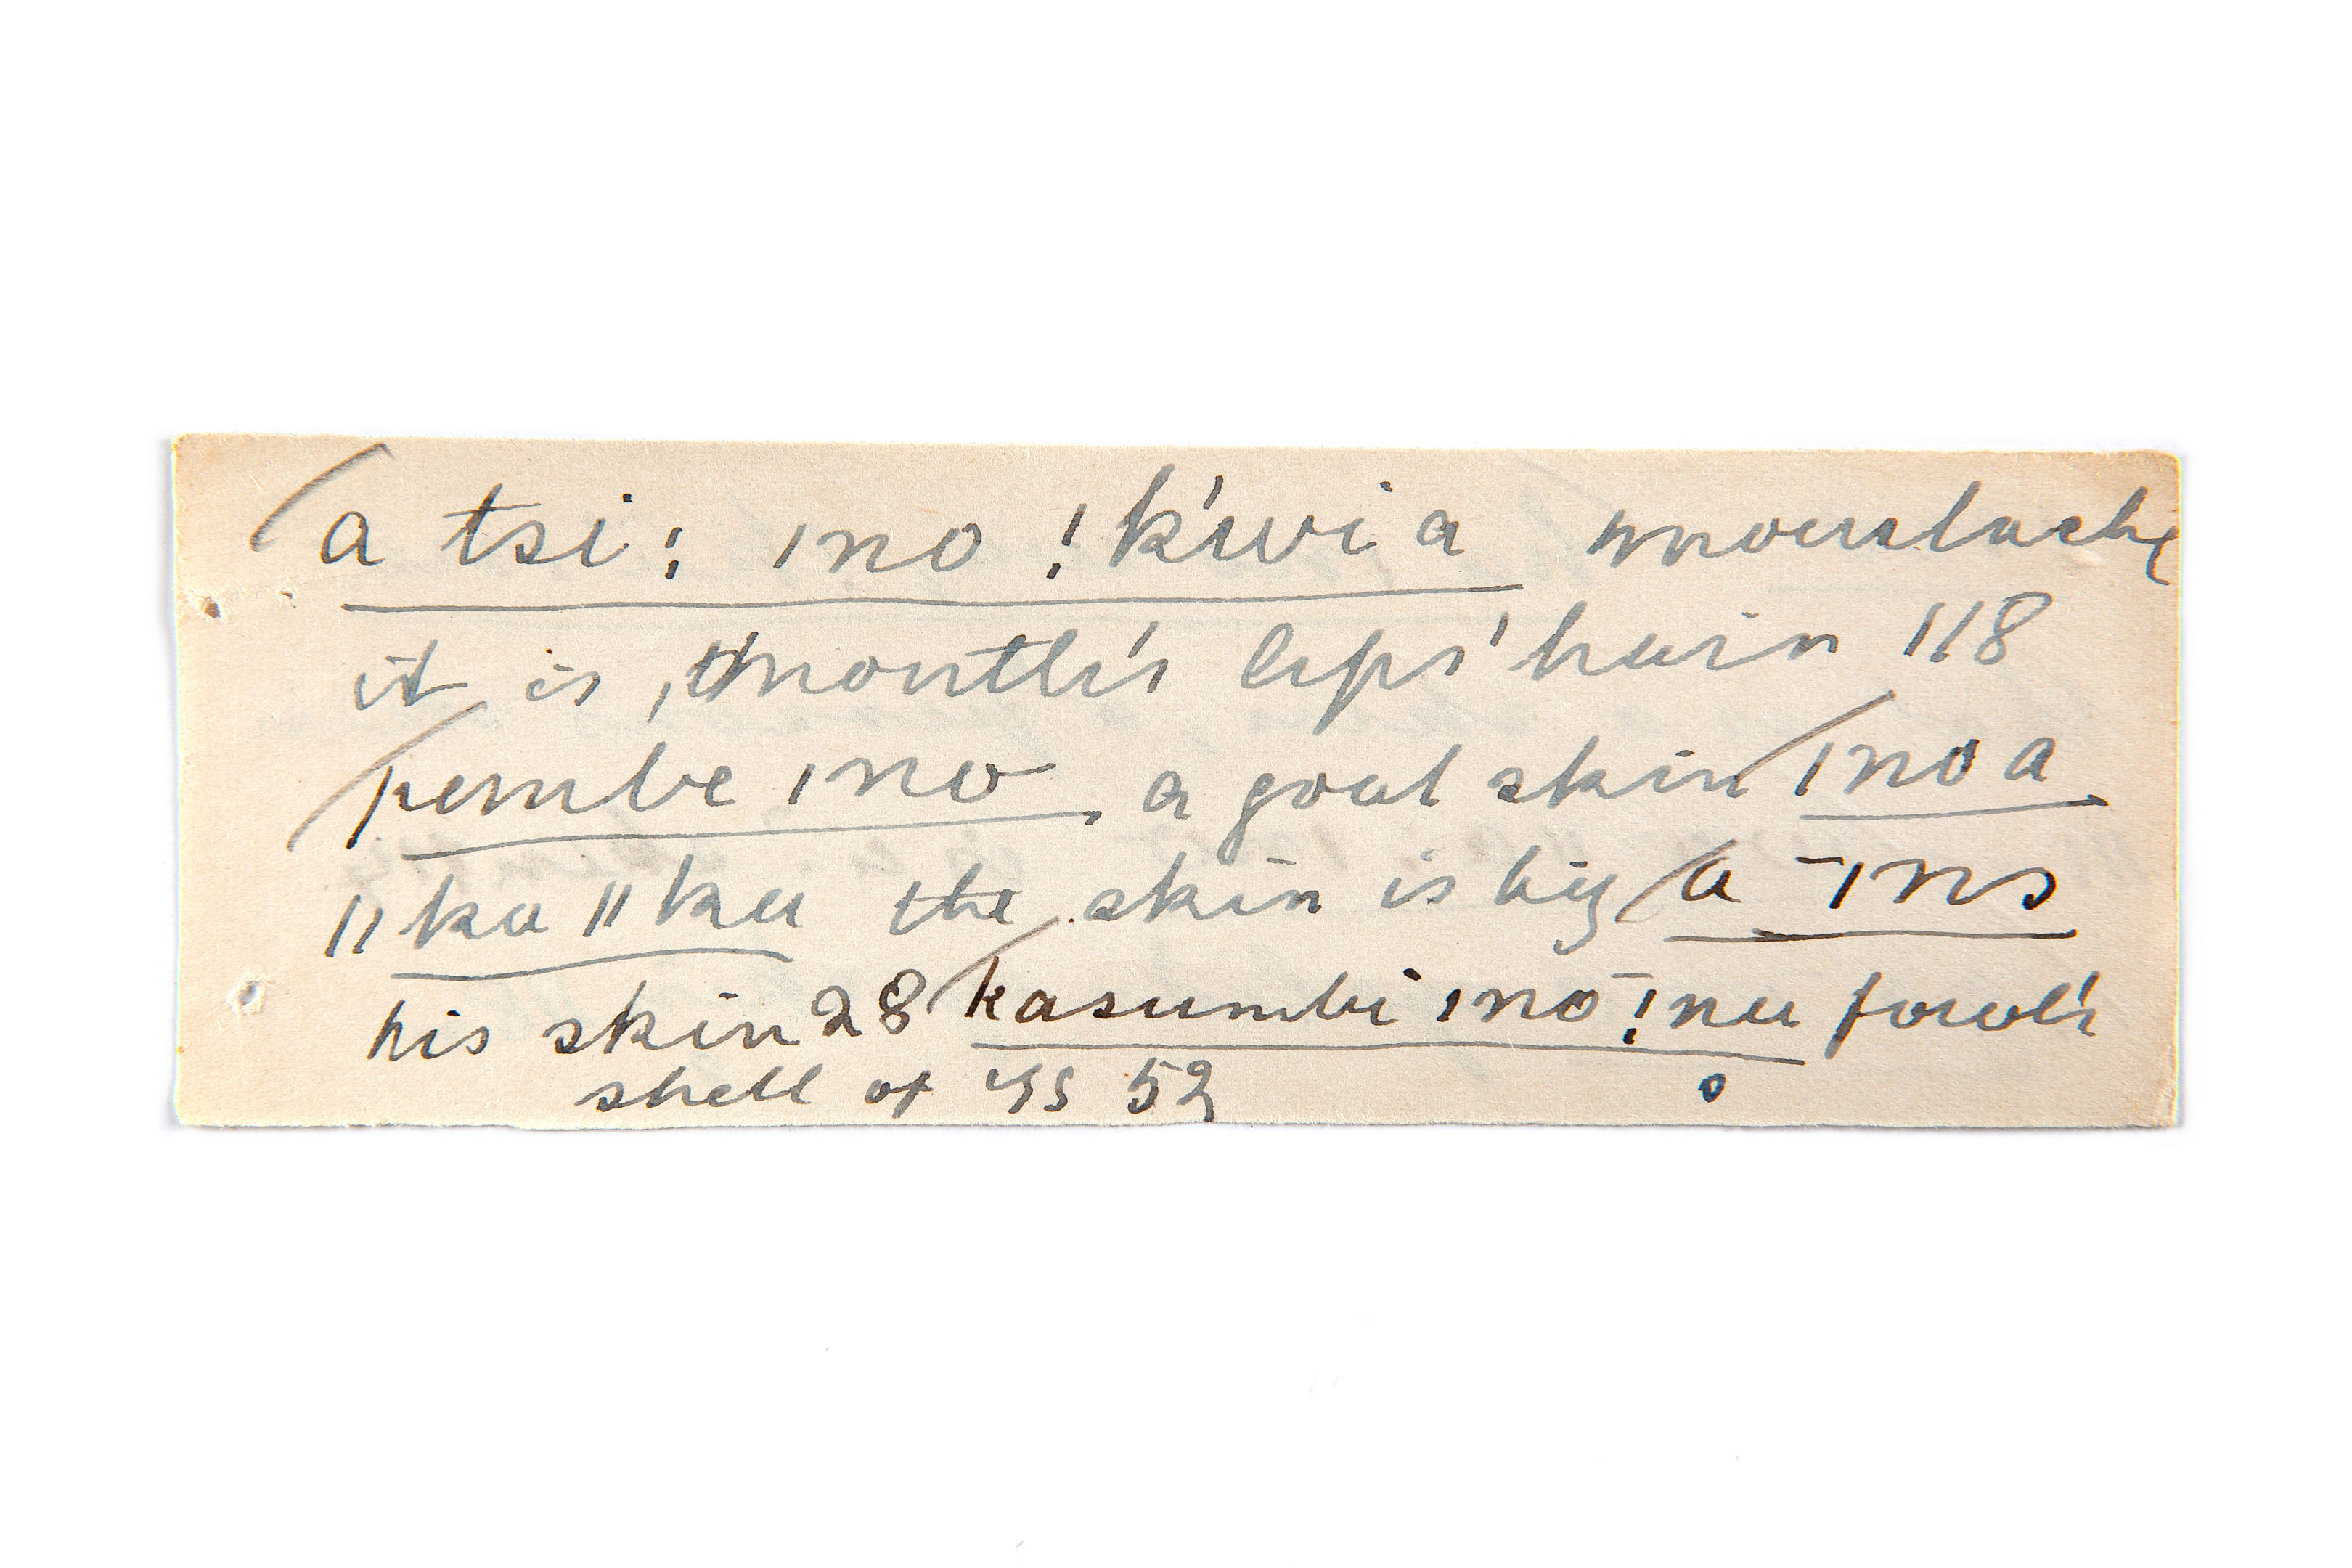 /a tsi: ǀno ǃk'wi a moustache
it is, mouth's lips' hair 118
/pembe ǀno, a goat skin /ǀno a
ǁka ǁku the skin is big /a ̄ǀno
his skin 28 /kasumbi ǀnō ǃnu fowl's
shell of 52